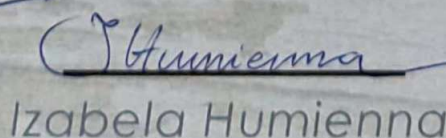 IHumienna
Izabela Humienna